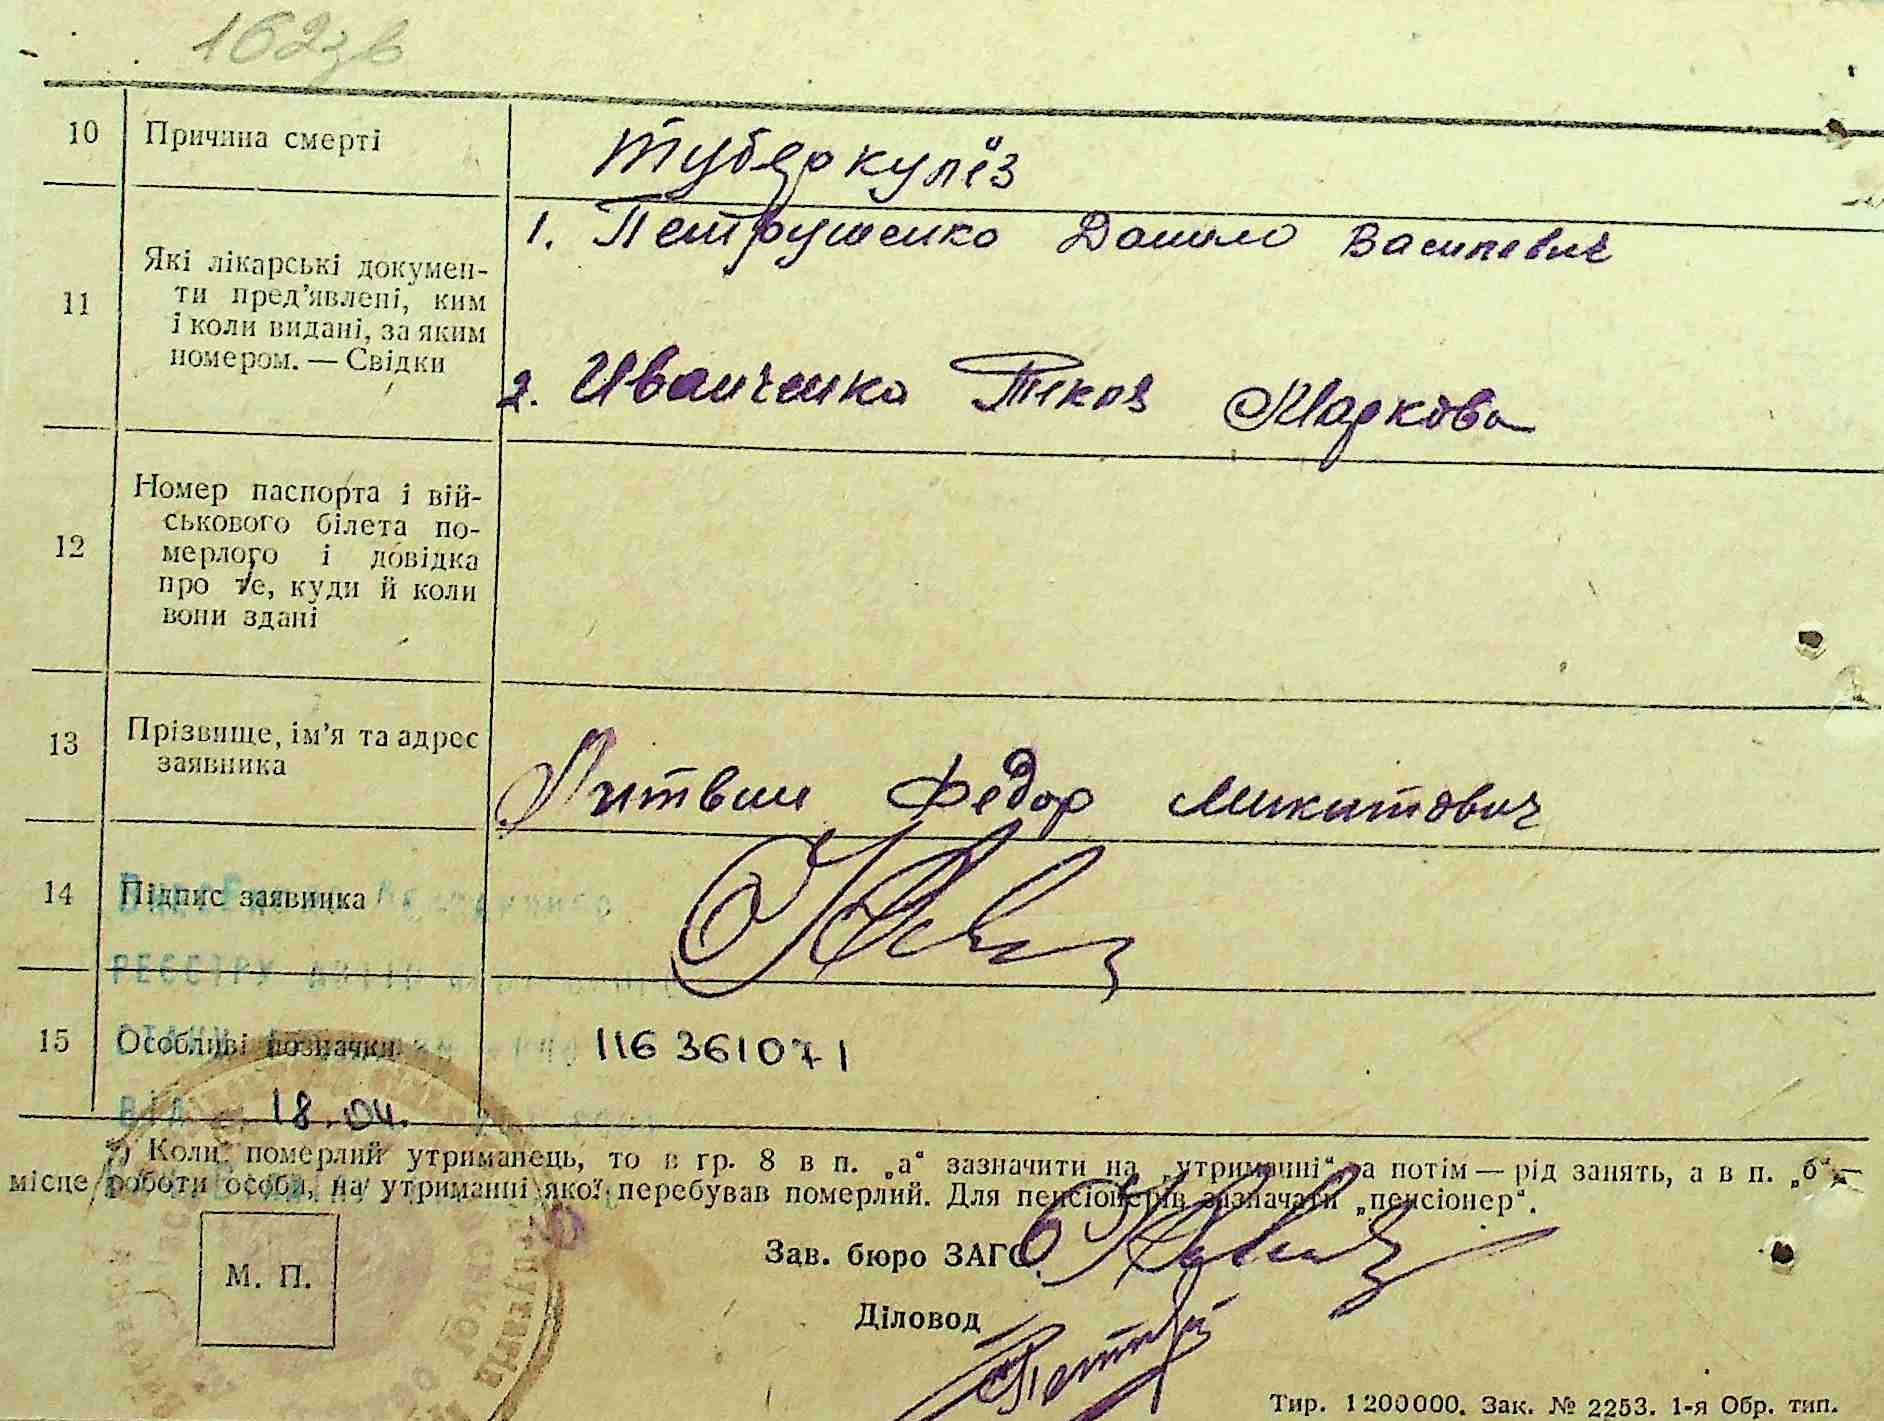 162зв
10 Причина смерті Туберкулёз
11 Які лікарські докумен-
ти пред'явлені, ким
і коли видані, за яким
номером. — Свідки
1. Петрушенко Данило Василевич
2. Иванченко Маркова
12 Номер паспорта і вій-
ськового білета по-
мерлого і довідка
про те, куди й коли
вони здані
13 Прізвище, ім'я та адрес
заявника
Литвин Федор Микитович
14 Підпис заявника
РЕЄСТРУ
15 Особливі позначки 116361071
ВІД 18.04.
*) Коли померлий утриманець, то в гр. 8 в п. „а“ зазначити на „утриманні“ а потім — рід занять, а в п. „б“ —
місце роботи особи, на утриманні якої перебував померлий. Для пенсіонерів зазначати „пенсіонер“.
М. П.
Зав. бюро ЗАГС
Діловод
Тир. 1200000. Зак. № 2253. 1-я Обр. тип.